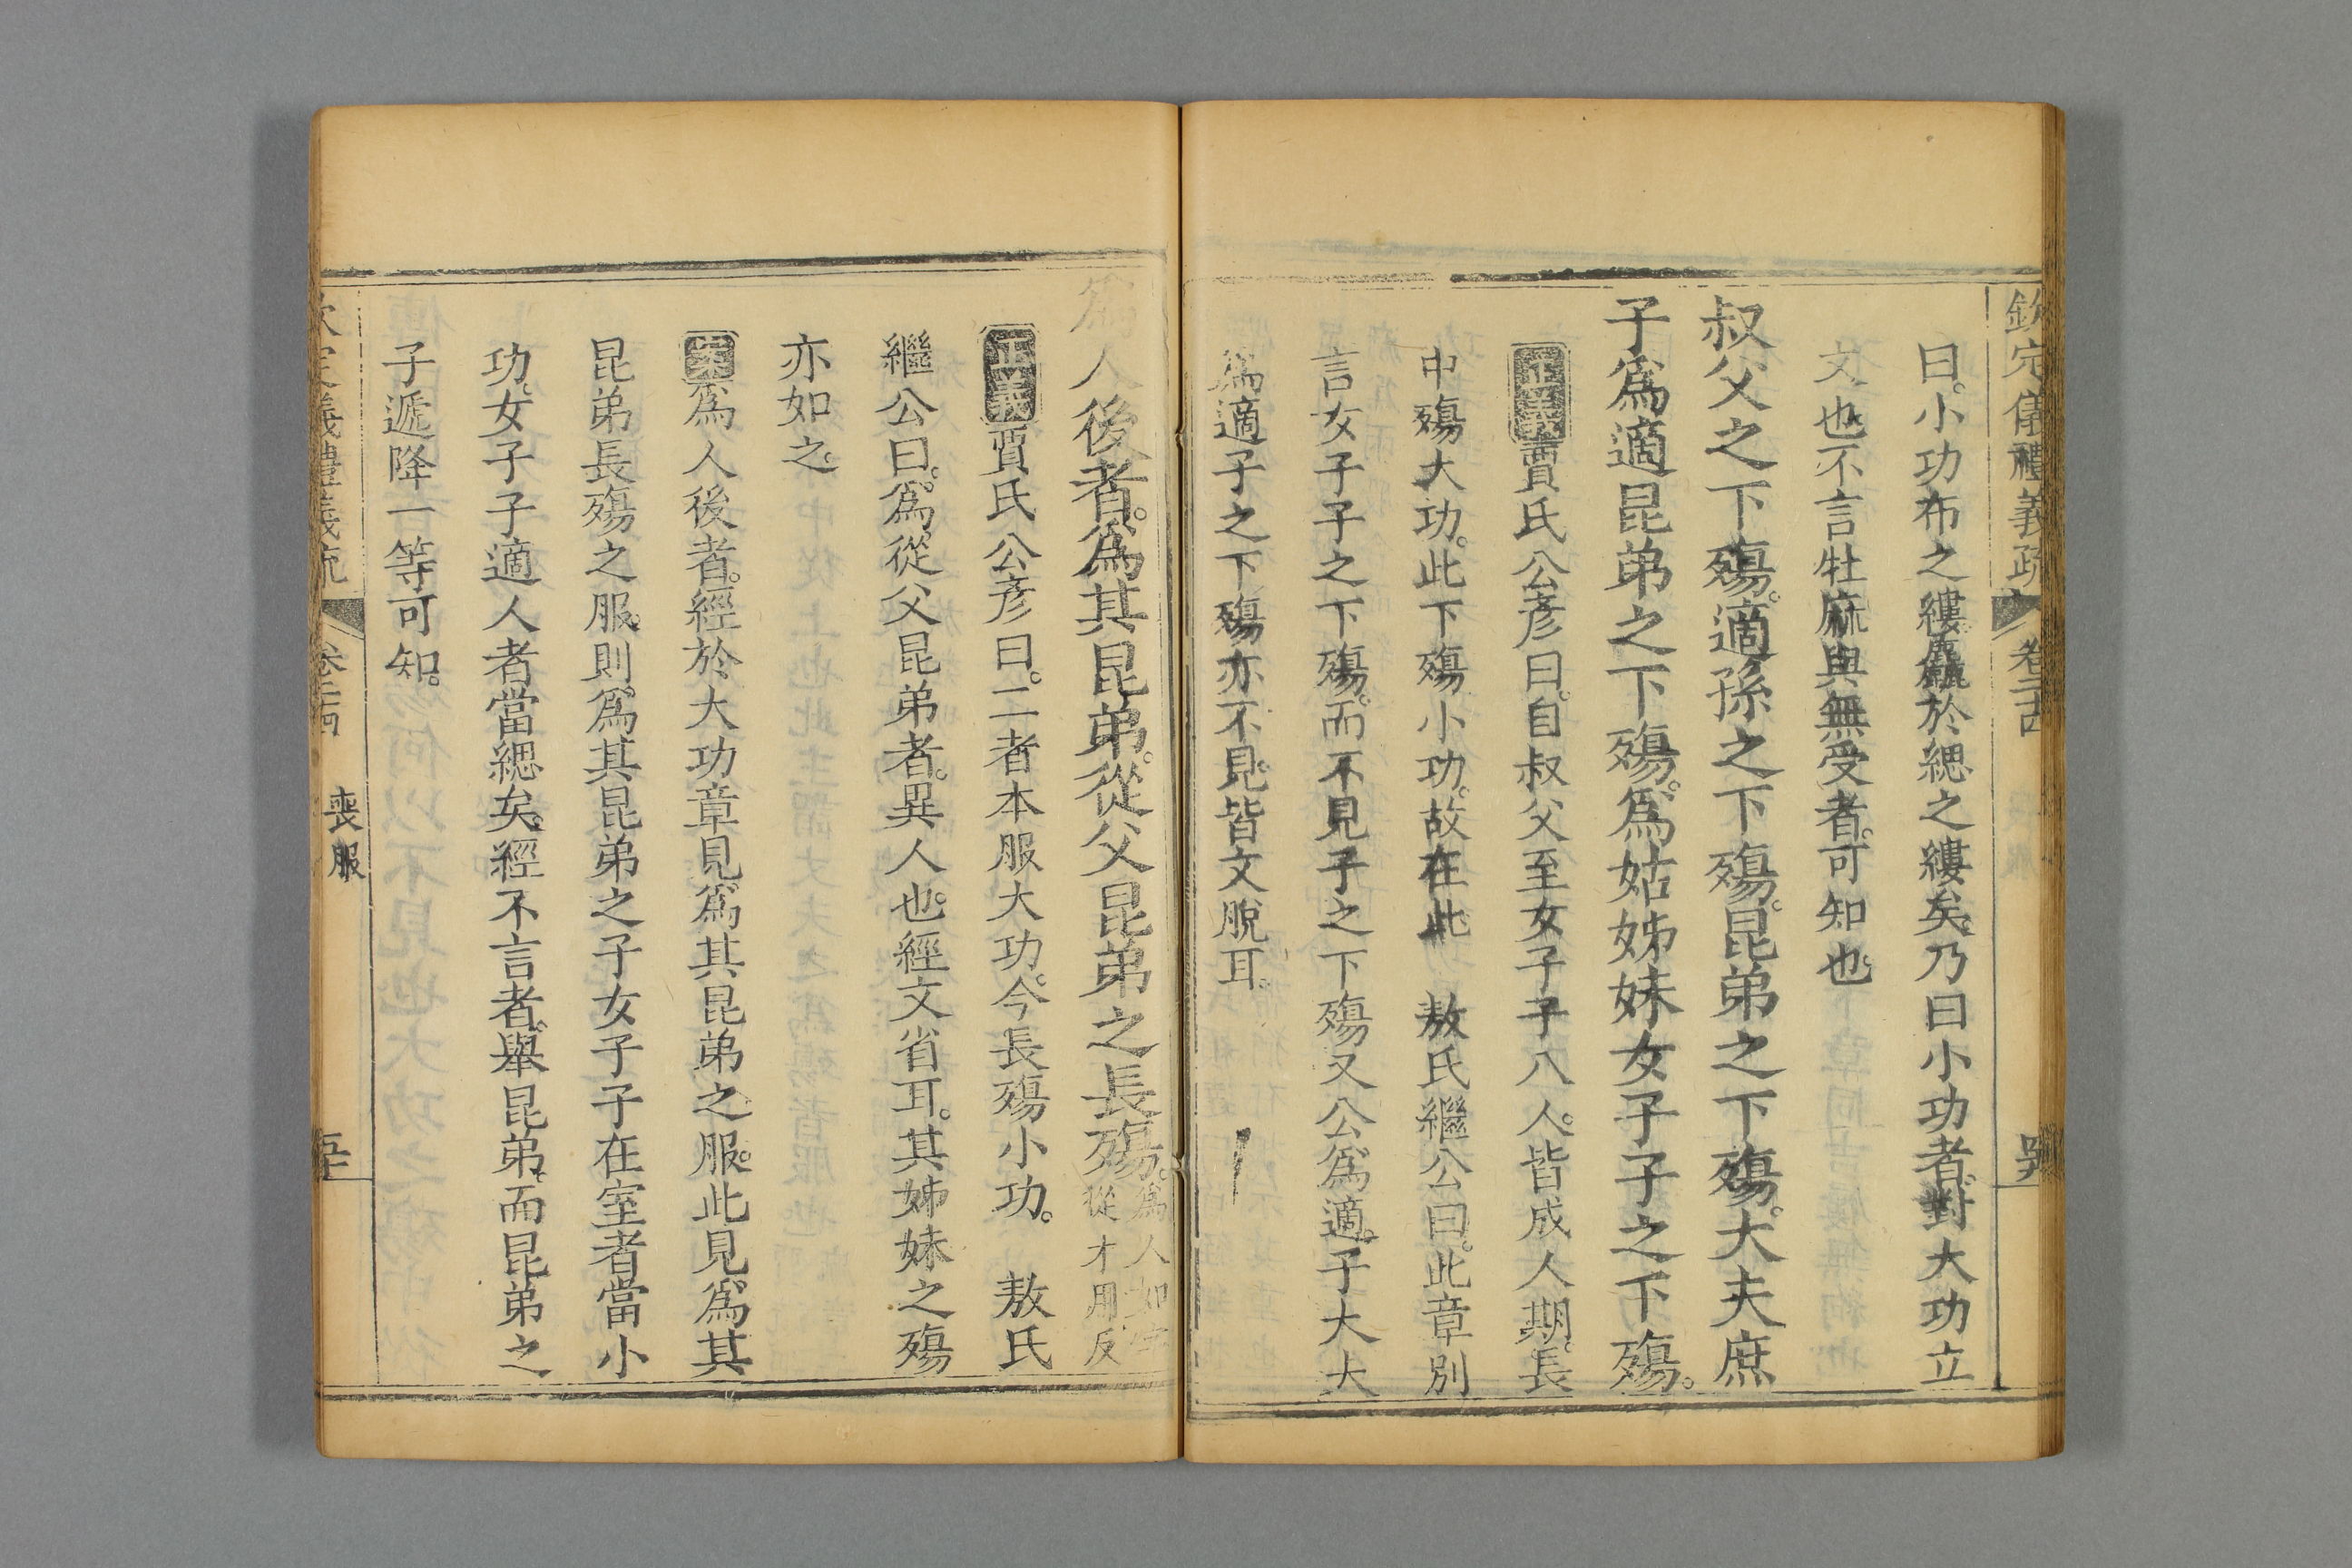 欽定儀禮義疏 卷二十四
曰。小功布之縷麤於緦之縷矣。乃曰小功者。對大功立
文也。不言牡麻與無受者。可知也。
叔父之下殤。適孫之下殤。昆弟之下殤。大夫庶
子爲適昆弟之下殤。爲姑姊妹女子子之下殤。
正義賈氏公彦曰。自叔父至女子子八人。皆成人期。長
中殤大功。此下殤小功。故在此 敖氏繼公曰。此章別
言女子子之下殤。而不見子之下殤又公爲適。子大大
爲適子之下殤亦不見。皆文脫耳。
爲人後者。爲其昆弟。從父昆弟之長殤。爲人如字
從才用反
正義賈氏公彦曰。二者本服大功。今長殤小功。 敖氏
繼公曰。爲從父昆弟者。異人也。經文省耳。其姊妹之殤
亦如之。
案爲人後者。經於大功章見爲其昆弟之服。此見爲其
昆弟長殤之服。則爲其昆弟之子女子子在室者當小
功。女子子適人者當緦矣。經不言者。舉昆弟。而昆弟之
子遞降一等可知。
欽定儀禮義疏 卷二十四 喪服 五十